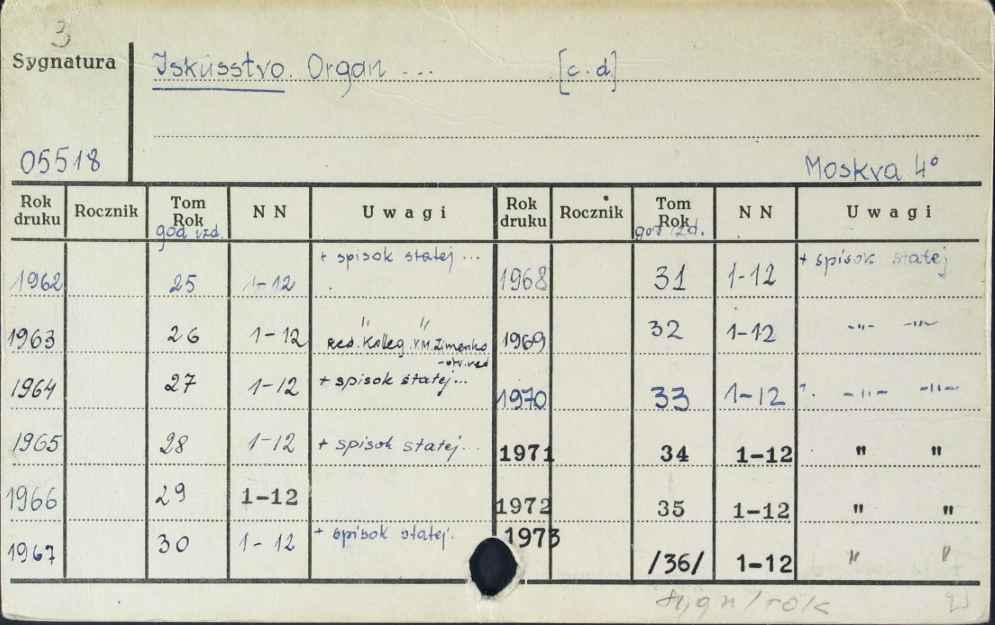 3
Sygnatura
Iskusstvo. Organ ... [c.d]
05518
Moskva 4°
Rok druku Rocznik Tom Rok NN Uwagi Rok druku Rocznik Tom Rok NN Uwagi
god izd. god izd.
1962 25 1-12 + spisok statej ... 1968 31 1-12 + spisok statej
1963 26 1-12 " " 1969 32 1-12 -"- -"-
Red. Kolleg. V.M. Zimenko
-otv. red
1964 27 1-12 + spisok statej... 1970 33 1-12 -"- -"-
1965 28 1-12 + spisok statej... 1971 34 1-12 " "
1966 29 1-12 1972 35 1-12 " "
1967 30 1-12 + spisok statej. 1973 /36/ 1-12 " "
sygn/rok